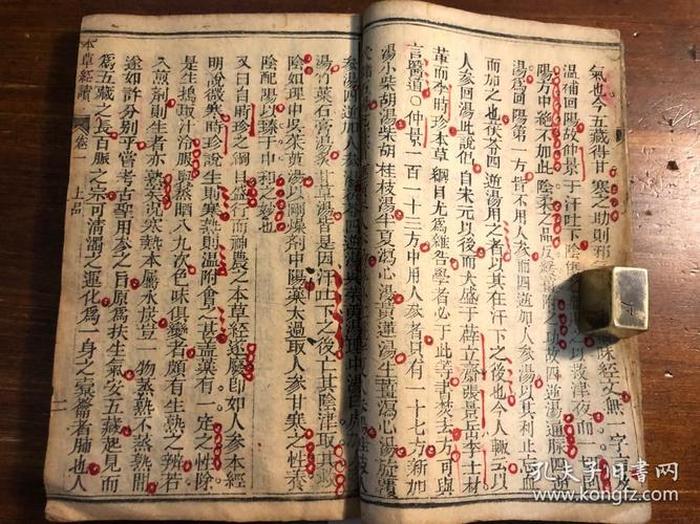 氣也今五藏得甘寒之助則
味經文無一字言及
溫補回陽故仲景于汗吐下陰傷之
以救津液而一
陽方中絕不加此陰柔之品
故四逆湯通脈四
湯為回陽第一方皆不用人參而四逆加人參湯以其利止
而加之也茯苓四逆湯用之者以其在汗下之後也今人輒云以
人參回湯此說倡自宋元以後而大盛于薛立齋張景岳李士材
輩而李時珍本草綱目尤為雜沓學者必于此等書焚去方可與
言醫道○仲景一百一十三方中用人參者只有一十七方新加
湯小柴胡湯柴胡桂枝湯半夏瀉心湯黃連湯生薑瀉心湯旋覆
湯竹葉石膏湯炙甘草湯皆是因汗吐下之後亡其陰津取其救
陰如理中吳茱萸湯以剛燥劑中陽藥太過取人參甘寒之性養
陰配陽以臻于中和之妙也
又曰自時珍之綱目盛行而神農之本草經遂廢即如人參本經
明說微寒時珍說生則寒熱則溫附會之甚蓋藥有一定之性除
是生搗取汁冷服與蒸晒八九次色味俱變者頗有生熟之辨若
入煎劑則生者亦熟矣況寒熱本屬冰炭豈一物蒸熟不蒸熟間
遂如許分別乎嘗考古聖用參之旨原為扶生氣安五藏起見而
為五藏之長百脈之宗司清濁之運化為一身之橐籥者肺也人
本草經讀
卷一
上品
二
孔夫子旧书网
www.kongfz.com